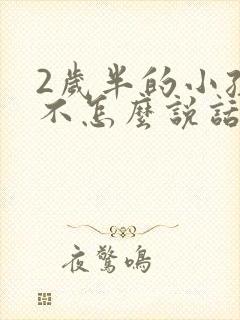 2歲半的小孩
不怎麼說話
夜驚鳴